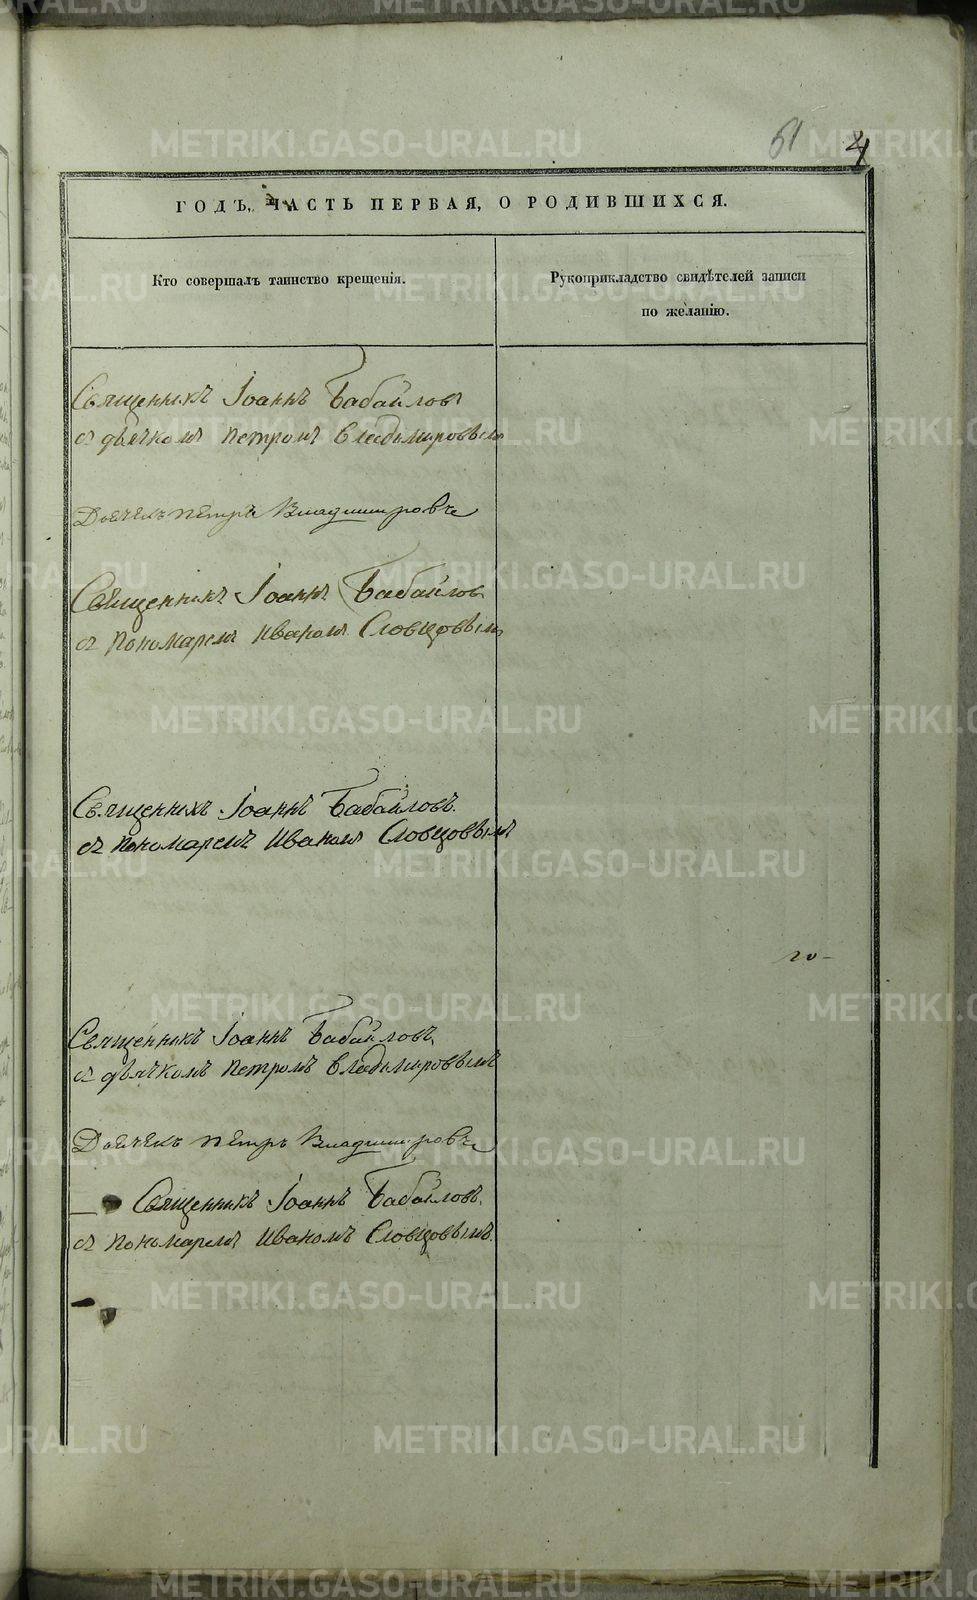 51 4
ГОДЪ, ЧАСТЬ ПЕРВАЯ, О РОДИВШИХСЯ.
Кто совершалъ таинство крещенія.
Рукоприкладство свидѣтелей записи
по желанію.
Священникъ Іоаннъ Бабайловъ
съ дьячкомъ Петромъ Владимировымъ
Дьячекъ Петръ Владимировъ
Священникъ Іоаннъ Бабайлов
съ пономаремъ Иваномъ Словцовымъ
Священникъ Іоаннъ Бабайловъ.
съ пономаремъ Иваномъ Словцовымъ
Священникъ Іоаннъ Бабайловъ
съ дьячкомъ Петромъ Владимировымъ
Дьячекъ Петръ Владимировъ
Священникъ Іоаннъ Бабайловъ
съ пономаремъ Иваномъ Словцовымъ.
METRIKI.GASO-URAL.RU